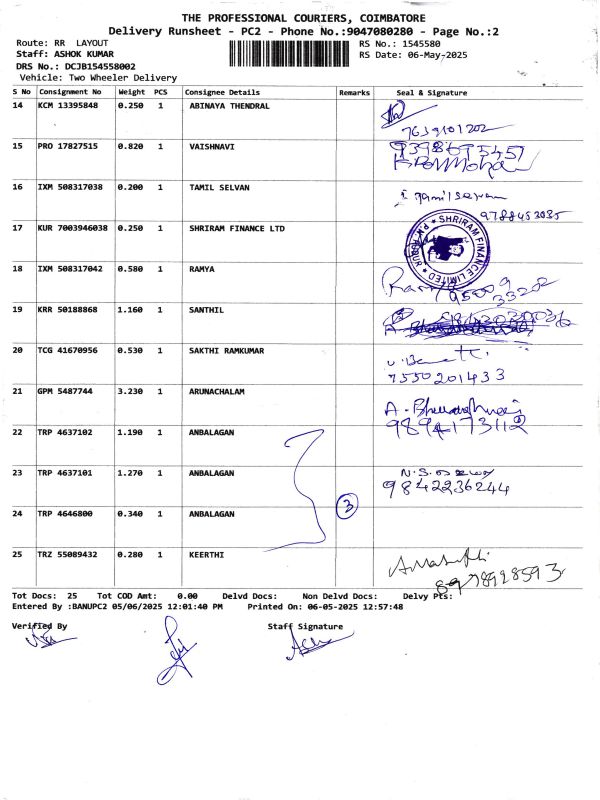 THE PROFESSIONAL COURIERS, COIMBATORE
Delivery Runsheet - PC2 - Phone No.:9047080280 - Page No.:2
Route: RR LAYOUT
RS No.: 1545580
Staff: ASHOK KUMAR
RS Date: 06-May-2025
DRS No.: DCJB154558002
Vehicle: Two Wheeler Delivery
S No Consignment No Weight PCS Consignee Details Remarks Seal & Signature
14 KCM 13395848 0.250 1 ABINAYA THENDRAL
7639101202
15 PRO 17827515 0.820 1 VAISHNAVI 9398695457
16 IXM 508317038 0.200 1 TAMIL SELVAN
9788453085
17 KUR 7003946038 0.250 1 SHRIRAM FINANCE LTD
SHRIRAM FINANCE LIMITED
18 IXM 508317042 0.580 1 RAMYA
95009
33202
19 KRR 50188868 1.160 1 SANTHIL
20 TCG 41670956 0.530 1 SAKTHI RAMKUMAR
7550201433
21 GPM 5487744 3.230 1 ARUNACHALAM
9894173112
22 TRP 4637102 1.190 1 ANBALAGAN
23 TRP 4637101 1.270 1 ANBALAGAN
9842236244
24 TRP 4646800 0.340 1 ANBALAGAN 3
25 TRZ 55089432 0.280 1 KEERTHI
8978928593
Tot Docs: 25 Tot COD Amt: 0.00 Delvd Docs: Non Delvd Docs: Delvy Pts:
Entered By :BANUPC2 05/06/2025 12:01:40 PM Printed On: 06-05-2025 12:57:48
Verified By Staff Signature